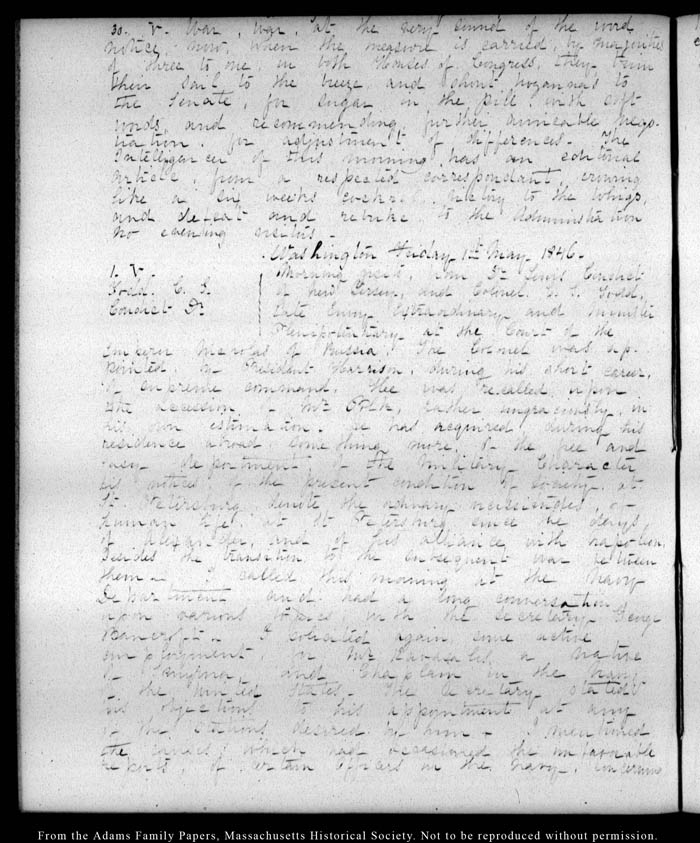 30. V. War, war, at the very sound of the word
notice, now, when the measure is carried, by majorities
of three to one in both Houses of Congress, they trim
their sail to the breeze and shout hosannas to
the Senate, for sugar in the pill, with soft
words, and recommending further amicable nego-
tiation, for adjustment of differences. The
Intelligencer of this morning has an editorial
article, from a respected correspondent, crowing
like a six weeks cockrel, victory to the Whigs,
and defeat and rebuke to the Administration
No evening visitors
Washington Friday 1st May 1846.
1. V.
Todd. C. S.
Condict Dr
Morning visits, from Dr Lewis Condict
of New Jersey, and Colonel C. S. Todd,
late Envoy Extraordinary and Minister
Plenipotentiary at the Court of the
Emperor Nicolas of Russia. The Colonel was ap-
pointed by President Harrison, during his short career,
of supreme command. Hee was recalled upon
the accession of Mr Polk, rather ungraciously, in
his own estimation. He has acquired during his
residence abroad, something more of the free and
easy deportment of the military character
his notices of the present condition of Society, at
St. Petersburg, denote the ordinary vicissitudes, of
human life, at St Petersburg since the days,
of Alexander, and of his alliance with Napoleon,
besides the transition to the subsequent war between
them. I called this morning at the Navy
Department and had a long conversation
upon various topics, with the Secretary George
Bancroft. I solicited again some active
employment, for Mr a native
of Smyrna, and Chaplain in the Navy
of the United States. The Secretary stated
his objections to his appointment at any
of the Stations desired by him. I mentioned
the causes, which had occasioned the unfavorable
reports, of certain Officers in the Navy, concerning
From the Adams Family Papers, Massachusetts Historical Society. Not to be reproduced without permission.